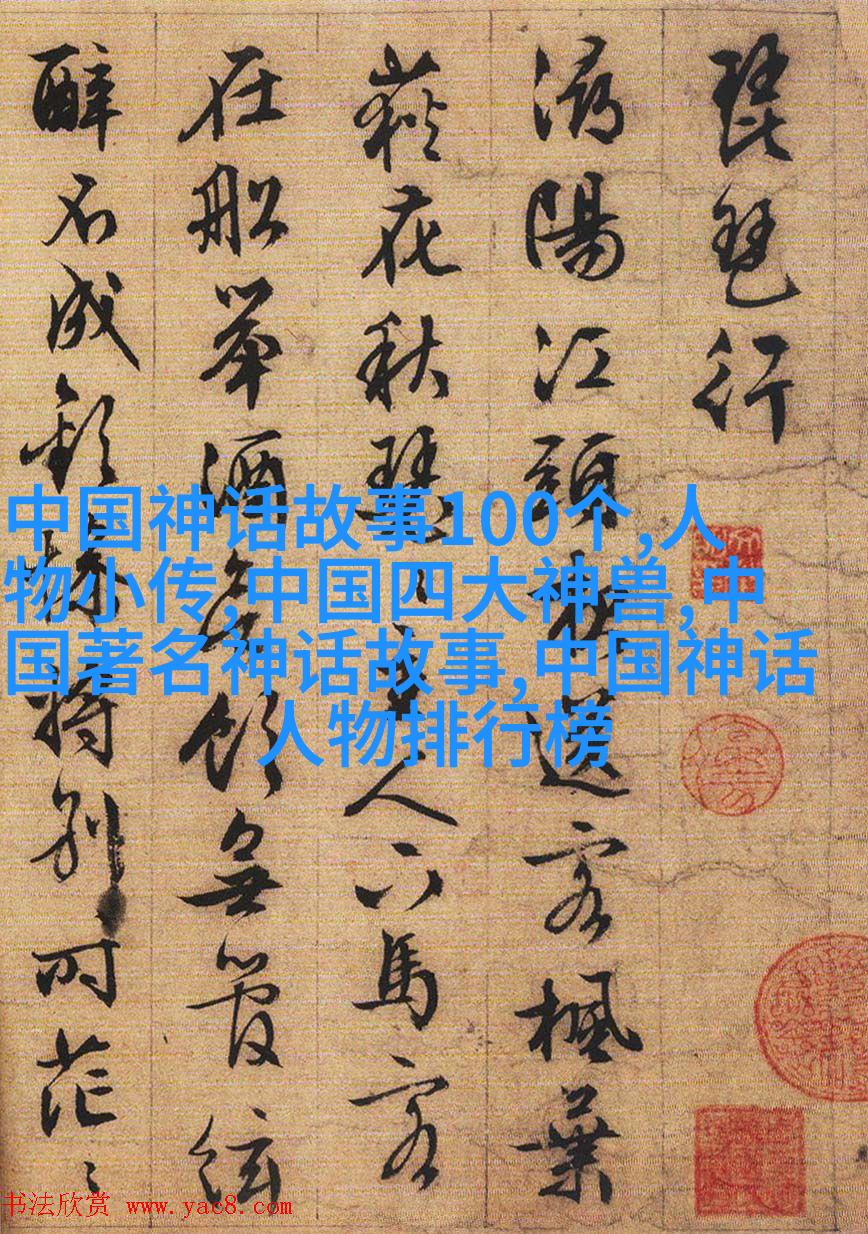 琵琶行
潯陽江頭夜送客楓葉
荻花秋瑟〻主人下馬客
在船舉酒欲飲無管絃
醉不成歡慘將別別時茫〻
中国神话故事100个,人
物小传,中国四大神兽,中
国著名神话故事,中国神话
人物排行榜
书法欣赏 www.yac8.com